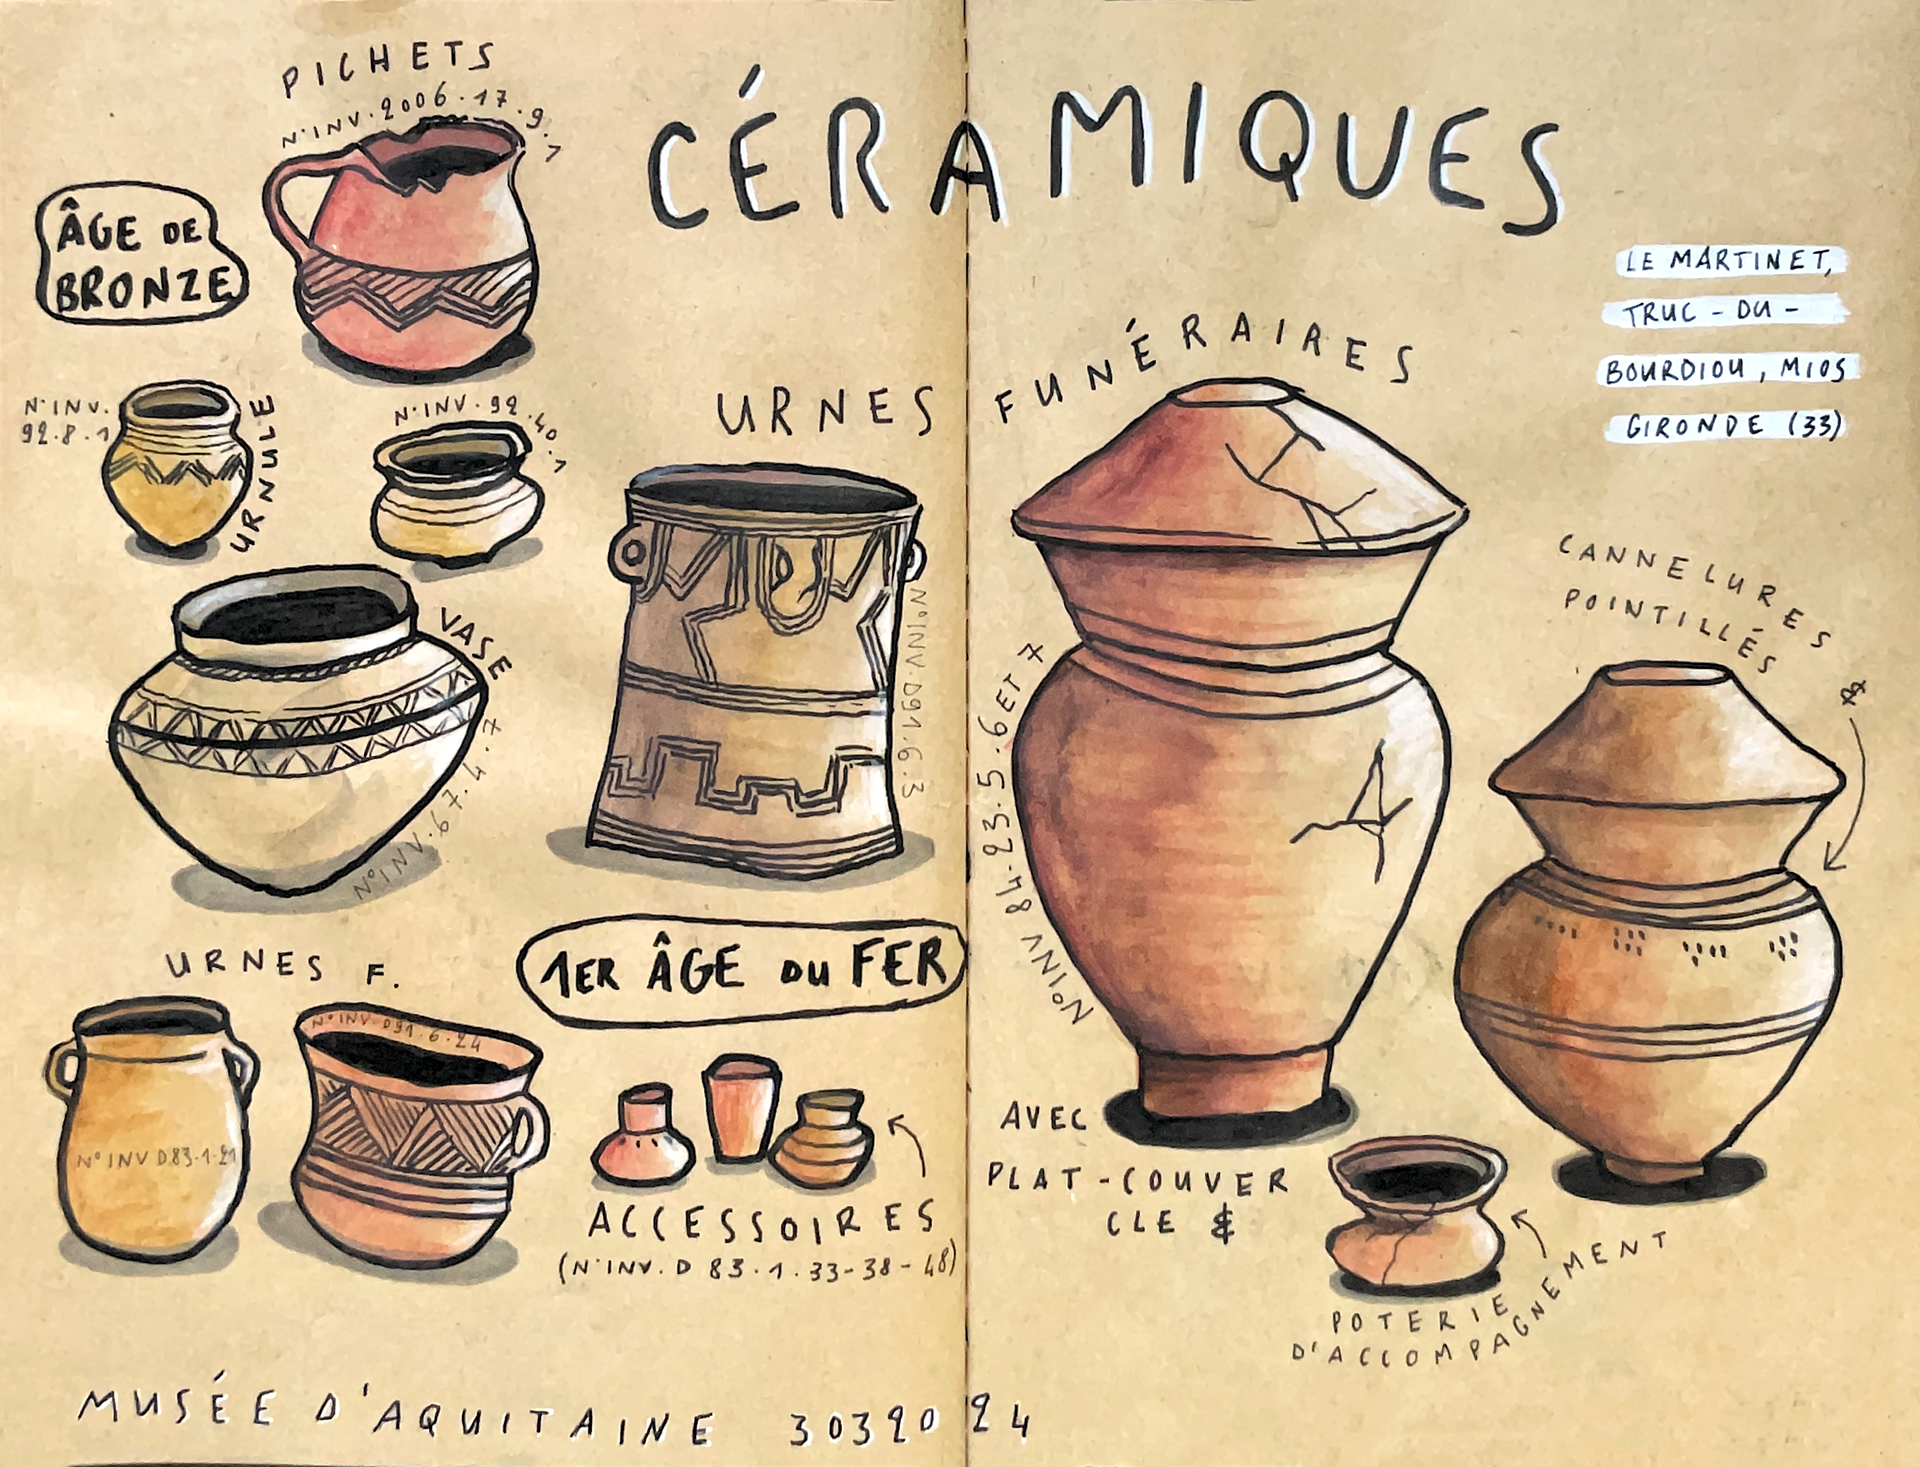 PICHETS
N°INV.2006.17.9.1
CÉRAMIQUES
ÂGE DE
BRONZE
LE MARTINET,
TRUC-DU-
BOURDIOU, MIOS
GIRONDE (33)
N°INV.
92.8.1
URNULE
N°INV.92.40.1
URNES FUNÉRAIRES
VASE
N°INV.67.4.7
N°INV.D91.6.3
N°INV 84.23.5.6 ET 7
CANNELURES
POINTILLÉS
&
URNES F.
1ER ÂGE DU FER
N°INV D83.1.21
N°INV.D91.6.24
ACCESSOIRES
(N°INV.D 83.1.33-38-48)
AVEC
PLAT-COUVER
CLE &
POTERIE
D'ACCOMPAGNEMENT
MUSÉE D'AQUITAINE 30392024